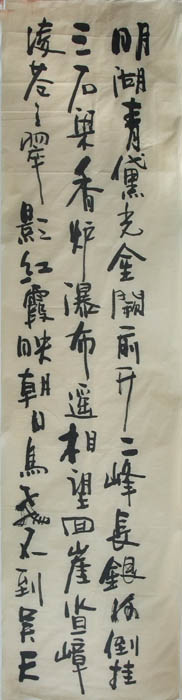 明湖青黛光金闕前开二峰長銀河倒挂
三石梁香炉瀑布遥相望回崖沓嶂
凌苍々翠影紅霞映朝日鳥飛不到吴天